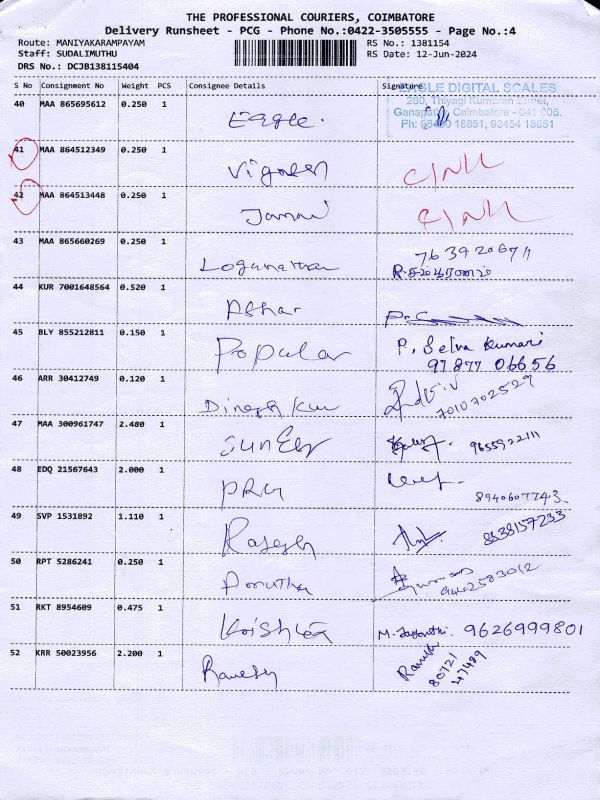 THE PROFESSIONAL COURIERS, COIMBATORE
Delivery Runsheet - PCG - Phone No.:0422-3505555 - Page No.:4
Route: MANIYAKARAMPAYAM
RS No.: 1381154
Staff: SUDALIMUTHU
RS Date: 12-Jun-2024
DRS No.: DCJB138115404
S No Consignment No Weight PCS Consignee Details Signature
EAGLE DIGITAL SCALES
280, Thiyagi Kumaran Street,
Ganapathy, Coimbatore - 641 006.
Ph: 98430 18851, 93454 18851
40 MAA 865695612 0.250 1 Eagle.
41 MAA 864512349 0.250 1 Vignesh
42 MAA 864513448 0.250 1
43 MAA 865660269 0.250 1 Loganathan
44 KUR 7001648564 0.520 1
45 BLY 855212811 0.150 1 Popular P. Selva Kumari
97877 06656
46 ARR 30412749 0.120 1 Dinesh Kum
7010702529
47 MAA 300961747 2.480 1 9655922111
48 EDQ 21567643 2.000 1 PRG
8940607743
49 SVP 1531892 1.110 1 Rajesh 8838157233
50 RPT 5286241 0.250 1
9442583012
51 RKT 8954609 0.475 1 9626999801
52 KRR 50023956 2.200 1 Ramesh Ramesh
80721
47489